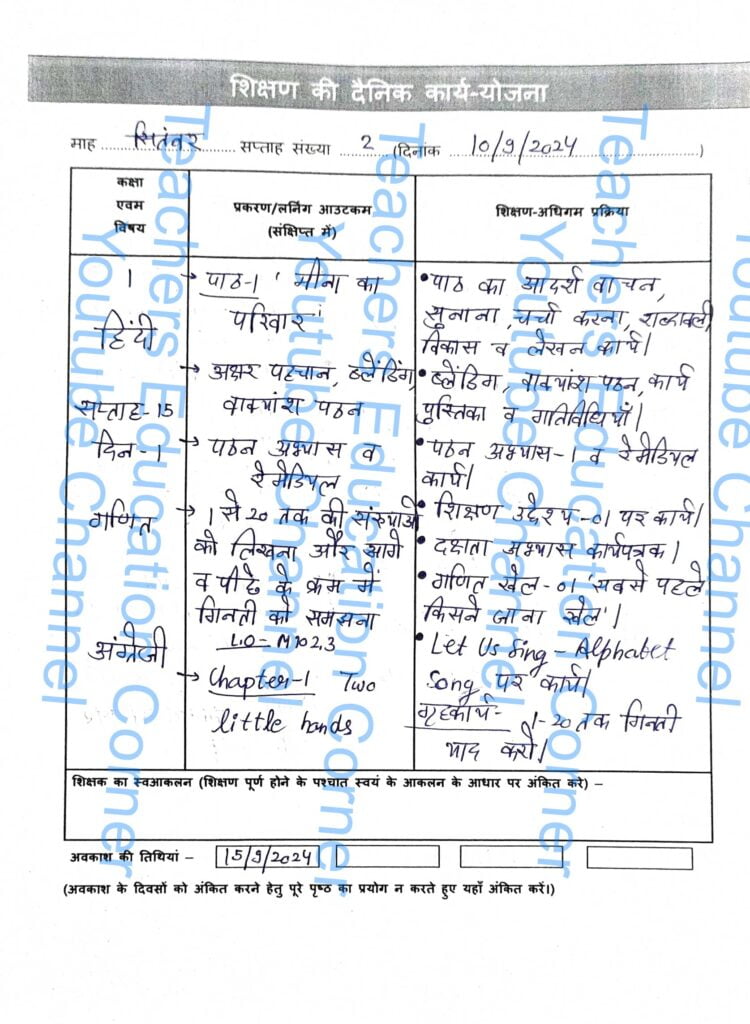 शिक्षण की दैनिक कार्य-योजना
माह सितंबर सप्ताह संख्या 2 (दिनांक 10/9/2024)
कक्षा
एवम
विषय
प्रकरण/लर्निंग आउटकम
(संक्षिप्त में)
शिक्षण-अधिगम प्रक्रिया
1
हिंदी
सप्ताह-15
दिन-1
गणित
अंग्रेजी
→ पाठ-1 'मीना का
परिवार'
→ अक्षर पहचान, ब्लेंडिंग,
वाक्यांश पठन
→ पठन अभ्यास व
रेमेडियल
→ 1 से 20 तक की संख्याओं
को लिखना और आगे
व पीछे के क्रम में
गिनती को समझना
L.O- M102.3
→ Chapter-1 Two
little hands
• पाठ का आदर्श वाचन,
सुनाना, चर्चा करना, शब्दावली
विकास व लेखन कार्य।
• ब्लेंडिंग, वाक्यांश पठन, कार्य
पुस्तिका व गतिविधियाँ।
• पठन अभ्यास-1 व रेमेडियल
कार्य।
• शिक्षण उद्देश्य-01 पर कार्य।
• दक्षता अभ्यास कार्यपत्रक।
• गणित खेल-01 'सबसे पहले
किसने जाना खेल'।
• Let Us Sing - Alphabet
Song पर कार्य।
गृहकार्य- 1-20 तक गिनती
याद करो।
शिक्षक का स्वआकलन (शिक्षण पूर्ण होने के पश्चात स्वयं के आकलन के आधार पर अंकित करे) –
अवकाश की तिथियां – 15/9/2024
(अवकाश के दिवसों को अंकित करने हेतु पूरे पृष्ठ का प्रयोग न करते हुए यहाँ अंकित करें।)
Teachers Education Corner
Youtube Channel
Teachers Education Corner
Youtube Channel
Teachers Education Corner
Youtube Channel